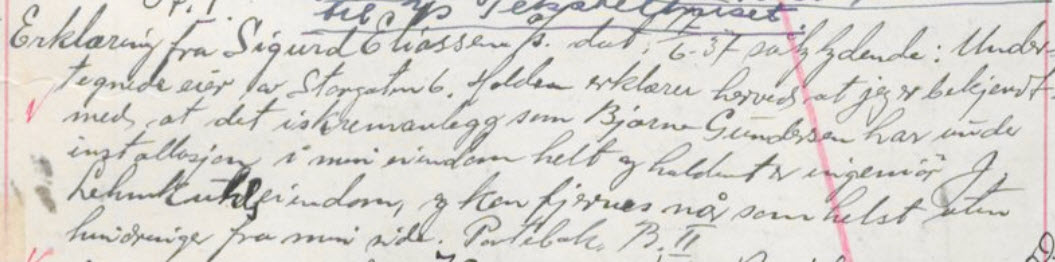 til
Erklæring fra Sigurd Eliassen dat. 6-37 så lydende: Under-
tegnede eier av Storgaten 6. Halden erklærer herved at jeg er bekjendt
med, at det iskremanlegg som Bjarne Gundersen har under
installasjon i min eiendom helt og holdent er ingeniør J.
Lehmkuhls eiendom, og kan fjernes når som helst uten
hindringer fra min side. B. II